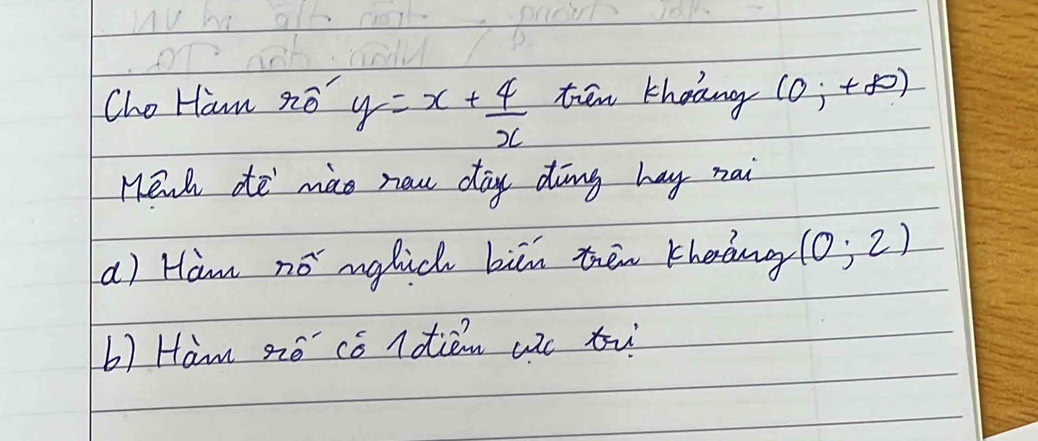 Cho Hàm số y = x + 4/x trên khoảng (0; +∞)
Mệnh đề nào sau đây đúng hay sai
a) Hàm số nghịch biến trên khoảng (0; 2)
b) Hàm số có 1 điểm cực trị